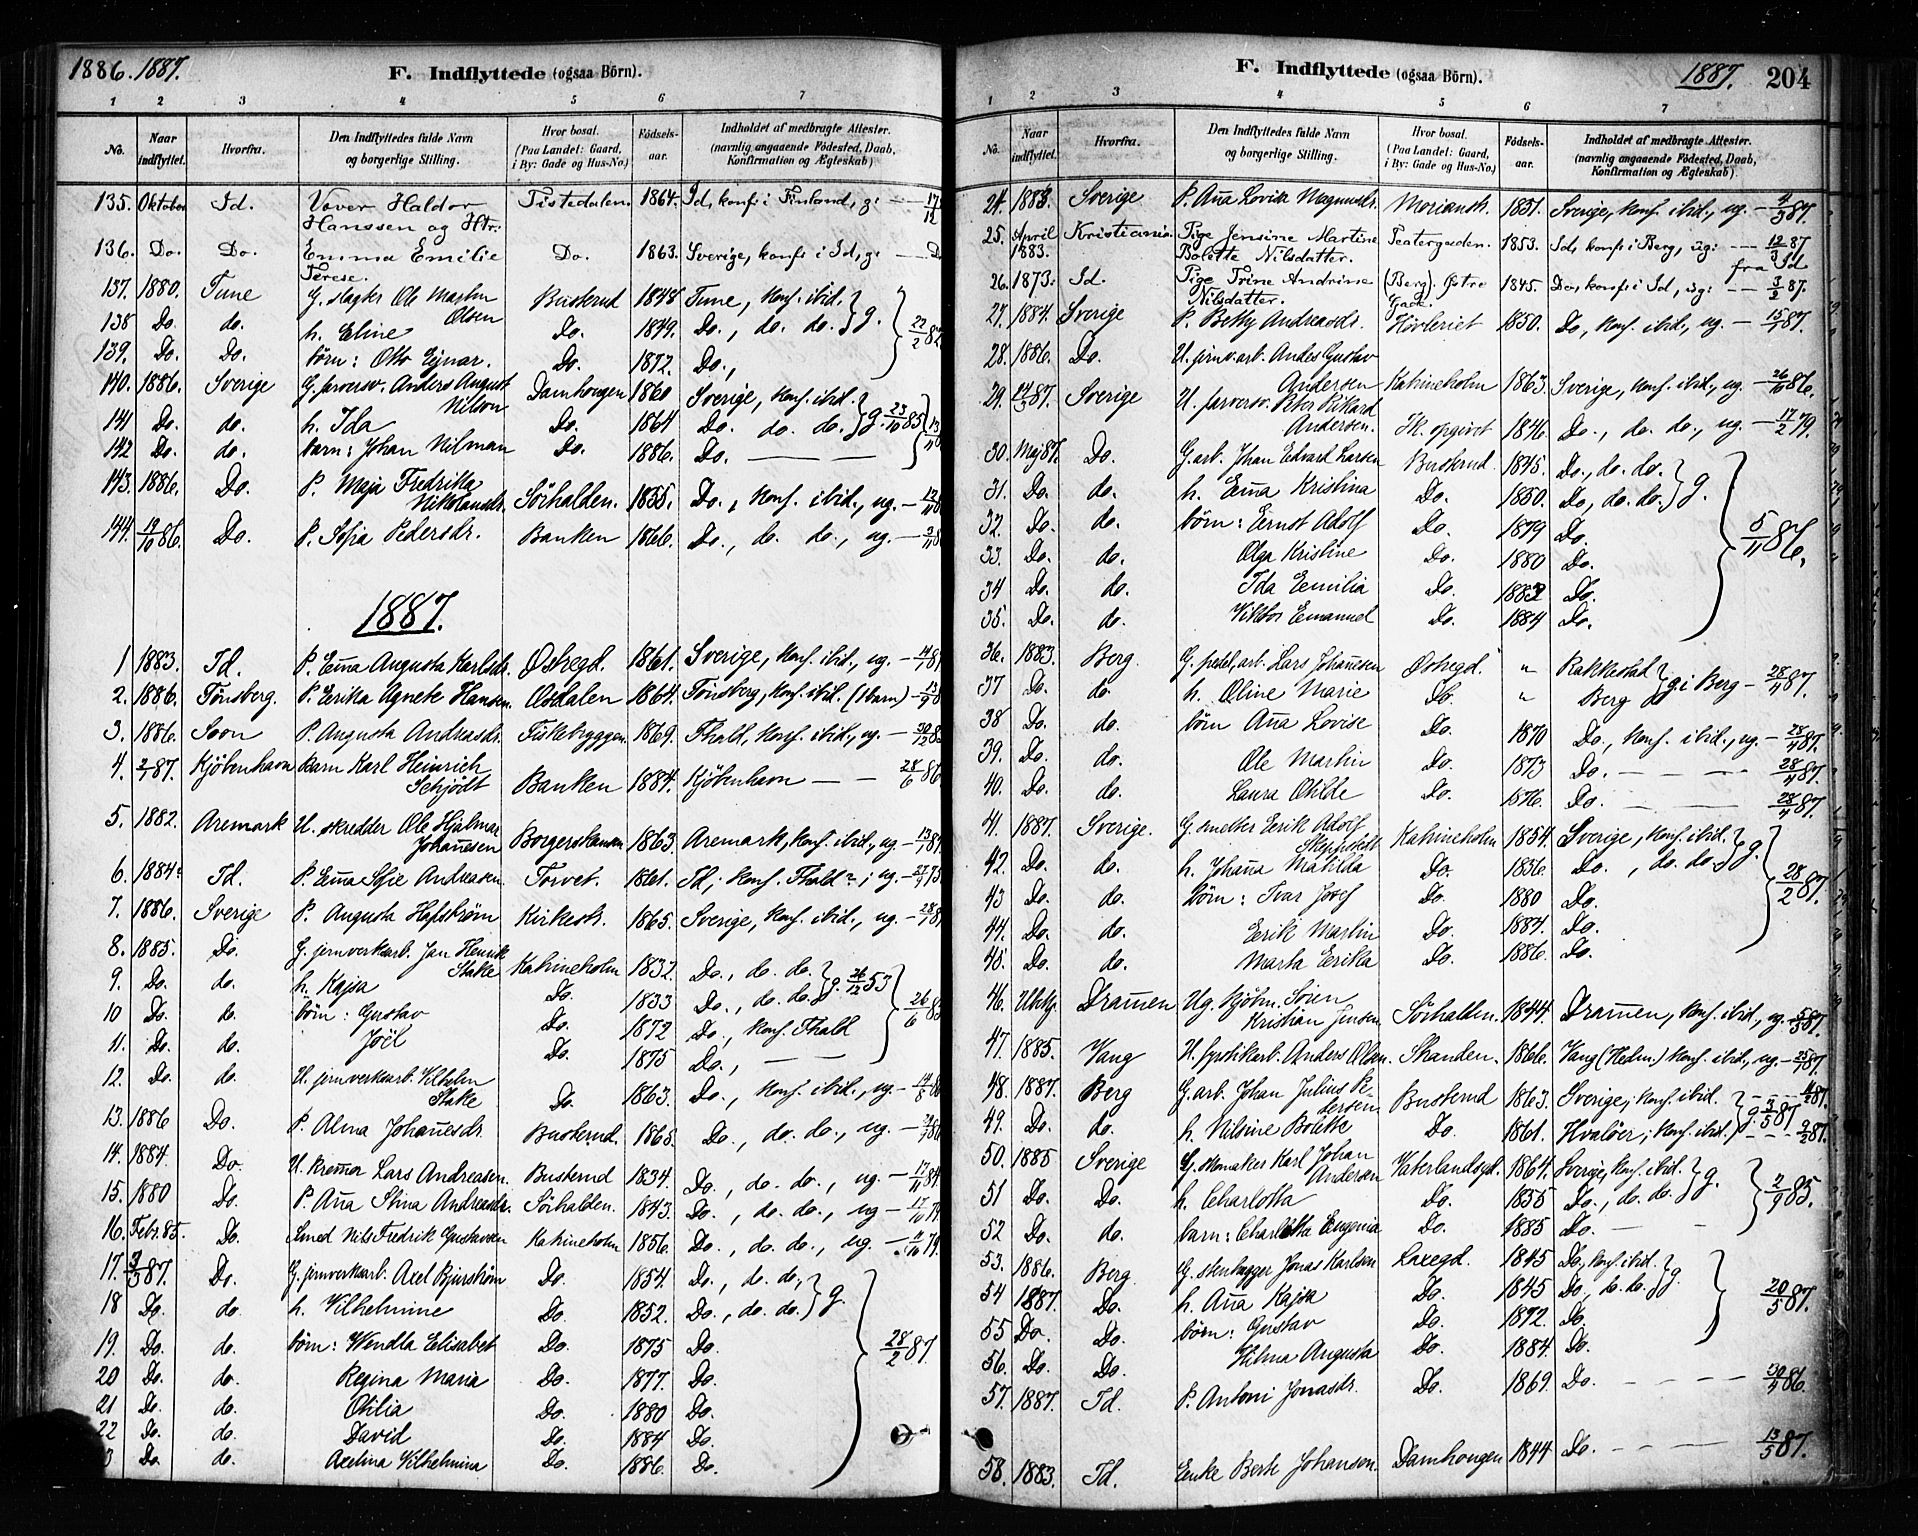 1886. 1887.
F. Indflyttede (ogsaa Börn).
1 2 3 4 5 6 7
No. Naar indflyttet. Hvorfra. Den Indflyttedes fulde Navn og borgerlige Stilling. Hvor bosat. (Paa Landet: Gaard, i By: Gade og Hus-No.) Födsels-aar. Indholdet af medbragte Attester. (navnlig angaaende Födested, Daab, Konfirmation og Ægteskab)
135. Oktober Id. Væver Haldor Tistedalen 1864. Id, konf. i Finland, g:
Hanssen og Htr:
136. Do. Do. Emma Emilie Do. 1863. Sverige, konf. i Id, g:
Terese.
137. 1880. Tune G. slagter Ole Martin Olsen Buskerud 1848 Tune, konf. ibid. g.
138 Do. do. h. Eline Do. 1849. Do., do. do.
139. Do. Do. börn: Otto Ejnar. Do. 1872. Do.,
140. 1886. Sverige G. farversv. Anders August Nilson Damhougen 1860 Sverige, konf. ibid.
141 Do. do. h. Ida Do. 1864 Do. do. do. g. 23/10 85
142 Do. do. barn: Johan Hilman Do. 1886. Do.
143. 1886. Do. P. Maja Fredrika Nikolausdr. Sörhalden. 1855. Do., konf. ibid., ug.
144. 19/10 86. Do. P. Sofia Pedersdr. Banken 1866. Do., do. do., ug.
1887.
1 1883. Id. P. Emma Augusta Karlsdr. Ostregd. 1861. Sverige, konf. ibid., ug.
2. 1886. Tönsberg. P. Erika Agnete Hansen. Osdalen 1864. Tönsberg, konf. ibid. (1 barn)
3. 1886. Soon P. Augusta Andreasdr. Fiskebryggen. 1869. Fhald, konf. ibid., ug.
4. 2/1 87. Kjöbenhavn Barn Karl Heinrich Schjödt Banken 1884. Kjöbenhavn 28/6 86
5. 1882. Aremark U. skredder Ole Hjalmar Johannesen Borgerskansen 1863. Aremark, konf. ibid., ug
6. 1884. Id. P. Emma Sofie Andreasen. Torvet. 1861. Id, konf. Fhald; ug.
7. 1886. Sverige P. Augusta Hafström Kirkestr. 1865. Sverige, konf. ibid., ug.
8. 1885. Do. G. jernverksarb. Jan Henrik Stake Katrineholm 1832. Do., do. do.
9. Do. do. h. Kajsa Do. 1833 Do., do. do. g. 26/12 53
10 Do. do. börn: Gustav Do. 1872 Do., konf. Fhald
11. Do. do. Joël Do. 1875 Do.,
12. Do. do. U. jernverksarb. Vilhelm Stake Do. 1863. Do., konf. ibid., ug.
13. 1886 Do. P. Alma Johannesdr. Buskerud. 1868. Do., do. do., ug.
14. 1884 Do. U. kremmer Lars Andreasen. Buskerud 1834. Do., do. do., ug.
15. 1880 Do. P. Anna Stina Andreasdr. Sörhalden. 1843. Do., do. do., ug
16. Febr. 85. Do. Smed Nils Fredrik Gustavsen Katrineholm 1856. Do., do. do., ug.
17. 87. Do. G. jernverksarb. Axel Bjurström Do. 1854. Do., do. do,
18 Do. do. h. Vilhelmine Do. 1852. Do., do. do. g.
19. Do. do. börn: Wendla Elisabet Do. 1875 Do. 28/2 87.
20 Do. do. Regina Maria Do. 1877. Do.
21 Do. do. Otilia Do. 1880 Do.
22 Do. do. David Do. 1884 Do.
3 Do. do. Axelina Vilhelmina Do. 1886. Do.
F. Indflyttede (ogsaa Börn). 1887. 204
1 2 3 4 5 6 7
No. Naar indflyttet. Hvorfra. Den Indflyttedes fulde Navn og borgerlige Stilling. Hvor bosat. (Paa Landet: Gaard, i By: Gade og Hus-No.) Födsels-aar. Indholdet af medbragte Attester. (navnlig angaaende Födested, Daab, Konfirmation og Ægteskab)
24. Sverige P. Anna Lovisa Magnusdr. 1851. Sverige, konf. ibid., ug.
25. April 1883. Kristiania. Pige Jensine Martine Bolette Nilsdatter. Teatergaden. 1853. Id, konf. i Berg, ug: 12/3 87
fra Id
26. 1873. Id. Pige Trine Andrine Nilsdatter. (Berg). Østre Gade. 1845. Do, konf. i Id, ug: 3/2 87.
27. 1884. Sverige P. Betty Andreasdr. Hövleriet 1850. Do, konf. ibid., ug. 15/1 87.
28. 1886. Do. U. jernv. arb. Andes Gustav Andersen Katrineholm 1863. Sverige, konf. ibid., ug. 26/10 86.
29. 24/3 87. Sverige U. farversv. Peter Rikard Andersen. Ik. opgivet 1846. Do., do. do., ug. 17/2 79.
30. Maj 87. Do. G. arb. Johan Edvard Larsen Buskerud 1845. Do., do. do.
31. Do. do. h. Emma Kristina Do. 1850. Do, do. do. g.
32. Do. do. börn: Ernst Adolf Do. 1879 Do. 5/11 86.
33. Do. do. Olga Kristine Do. 1880 Do.
34 Do. do. Ida Emilia Do. 1882 Do.
35. Do. do. Viktor Emanuel Do. 1884 Do.
36. 1883. Berg. G. arb. Lars Johannesen Ostregd. " Rakkestad
37 Do. do. h. Oline Marie Do. " Berg g. i Berg 28/4 87.
38 Do. do. börn Anna Lovise Do. 1870 Do., konf. ibid., ug. 28/4 87.
39. Do. do. Ole Martin Do. 1873 Do. 28/4 87.
40. Do. do. Laura Otilde Do. 1876. Do. 28/4 87.
41. 1887. Sverige. G. smelter Erik Adolf Katrineholm 1854. Sverige, konf. ibid.
42. Do. do. h. Johanna Matilda Do. 1856. Do., do. do. g.
43 Do. do. börn: Ivar Josef Do. 1880 Do. 28/2 87.
44. Do. do. Erik Martin Do. 1884. Do.
45. Do. do. Marta Erika Do. 1886. Do.
46. Dramen Ug. kjöbm. Sören Kristian Jensen Sörhalden. 1844. Dramen, konf. ibid., ug. 87.
47. 1885. Vang U. fyrstikarb. Anders Olsen. Skanden. 1866. Vang (Hedm.) konf. ibid., ug. 87.
48. 1887. Berg G. arb. Johan Julius Pedersen Buskerud 1863. Sverige, konf. ibid. 87.
49. Do. do. h. Nilsine Bolette Do. 1861. Hvalöer, konf. ibid. g. 3/5 87
50. 1885 Sverige G. skomaker Karl Johan Andersen Vaterlandsgd. 1864. Sverige, konf. ibid.
51 Do. Do. h. Charlotta Do. 1855 Do., do. do. g. 2/9 85.
52 Do. do. barn: Charlotta Eugenia Do. 1885 Do.
53. 1886. Berg. G. stenhugger Jonas Karlsen Laxegd. 1845 Do., konf. ibid.
54 1887. Do. h. Anna Kajsa Do. 1845 Do., do. do. g. 20/5 87.
55 Do. Do. börn: Gustav Do. 1872. Do.
56. Do. Do. Hilma Augusta Do. 1884. Do.
57. 1887. Id. P. Antoni Jonasdr. Do. 1869. Do. 30/4 86.
58. 1883. Id. Enke Berte Johansen. Damhougen 1844 Do. 13/5 87.